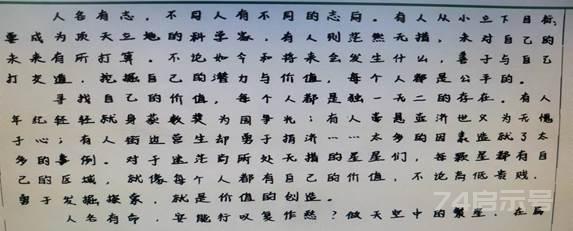 人各有志,不同人有不同的志向。有人从小立下目标,
要成为顶天立地的科学家,有人则茫然无措,未对自己的
未来有所打算。不论如今和将来会发生什么,善于与自己
打交道,挖掘自己的潜力与价值,每个人都是公平的。
寻找自己的价值,每个人都是独一无二的存在。有人
年纪轻轻就身获数奖为国争光;有人毫悬壶济也又为无愧
于心;有人街边营生却勇于捐济……太多的因素造就了太
多的事例。对于迷茫的所处无措的星星们,每颗星都有自
己的区域,就像每个人都有自己的价值,不论高低贵贱,
勇于发掘探索,就是价值的创造。
人各有命,安能行叹复作愁?做天空中的繁星,在
74启示号